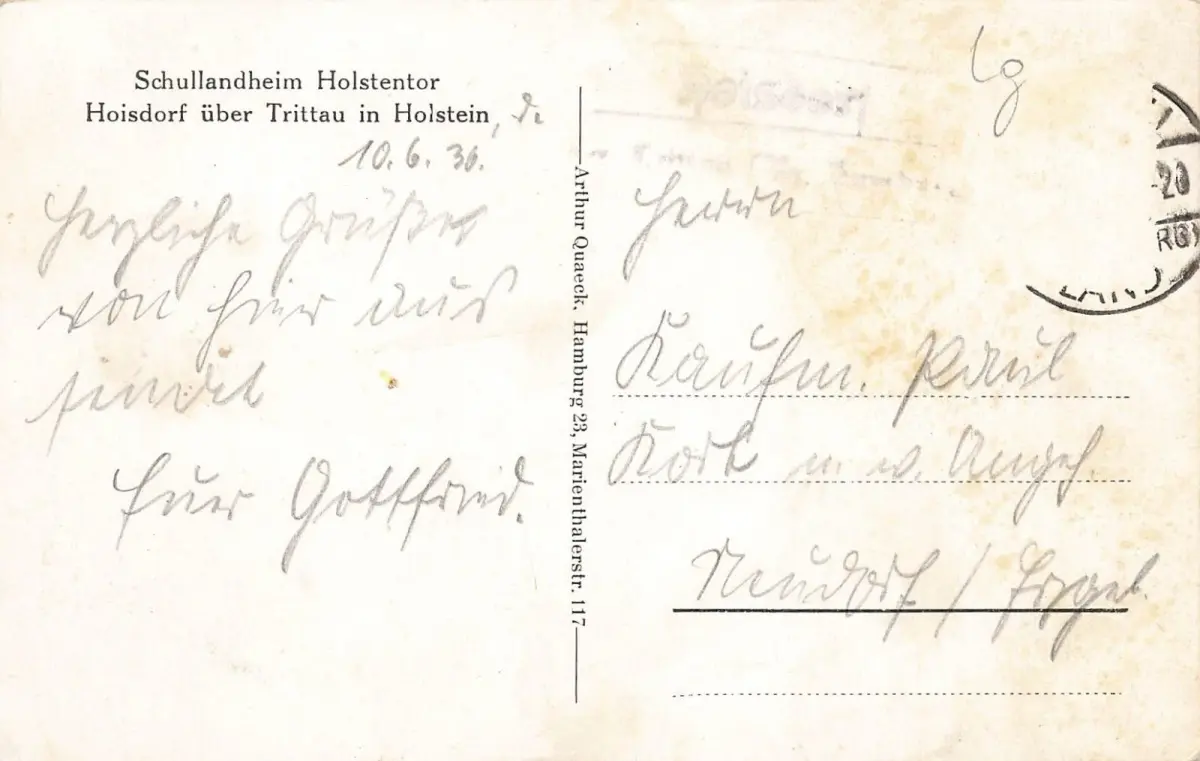 Schullandheim Holstentor
Hoisdorf über Trittau in Holstein, d.
10. 6. 36.
Herzliche Grüße
von hier aus
sendet
Euer Gottfried.
Arthur Quaeck, Hamburg 23, Marienthalerstr. 117
Herrn
Kaufm. Paul
u. w. Angeh.
Neudorf / Erzgeb.
-20